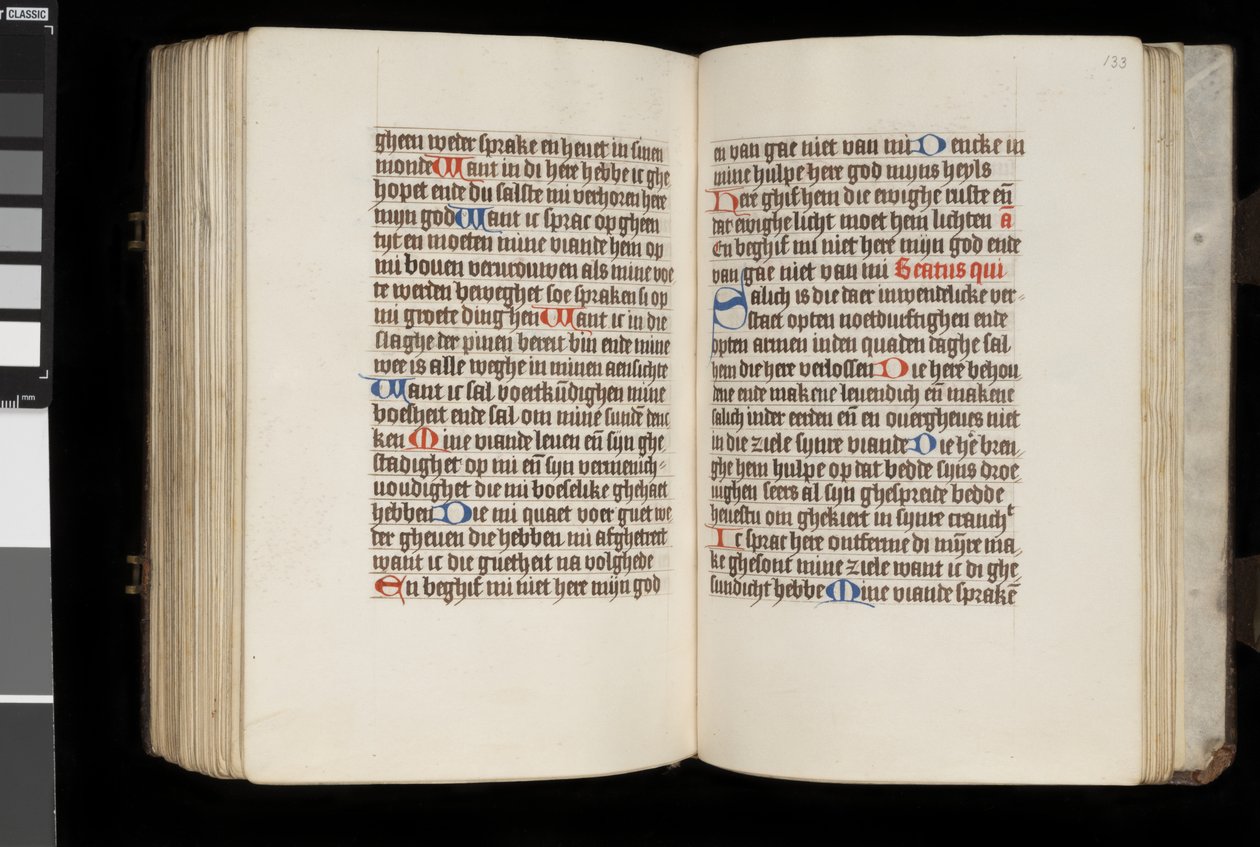 r CLASSIC
mm
gheen weder sprake en heuet in sinen
monde Want in di here hebbe ic ghe
hopet ende du salste mi verhoren here
myn god Want ic sprac op gheen
tyt en moeten mine viande hem op
mi bouen vervrouwen als mine voe
te werden beweghet soe spraken si op
mi groete dinghen Want ic in die
slaghe der pinen bereit bin ende mine
wee is alle weghe in minen aensichte
Want ic sal voerkūdighen mine
boesheit ende sal om mine sundē denc
ken Mine viande leuen eñ syn ghe
stadighet op mi eñ syn vermenich⸗
uoudighet die mi boeselike ghehaet
hebben Die mi quaet voer guet we
der gheuen die hebben mi afghetrect
want ic die guetheit na volghede
En beghif mi niet here mijn god
133
en van gae niet van mi Dencke in
mine hulpe here god mijns heyls
Here ghif hem die ewighe ruste eñ
dat ewighe licht moet hem lichten ā
En beghif mi niet here mijn god ende
van gae niet van mi Beatus qui
Salich is die daer inwendelicke ver⸗
staet opten noetdurftighen ende
opten armen inden quaden daghe sal
hem die here verlossen Die here behou
dene ende makene leuendich eñ makene
salich inder eerden eñ en ouergheues niet
in die ziele synre viande Die hēe bren
ghe hem hulpe op dat bedde syns droe
uighen seers al syn ghespreide bedde
heuestu om ghekiert in synre cranch
Ic sprac here ontferme di mijre ma
ke ghesont mine ziele want ic di ghe
sundicht hebbe Mine viande sprakē